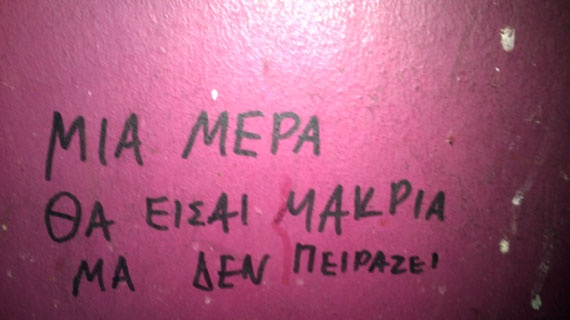 ΜΙΑ ΜΕΡΑ
ΘΑ ΕΙΣΑΙ ΜΑΚΡΙΑ
ΜΑ ΔΕΝ ΠΕΙΡΑΖΕΙ